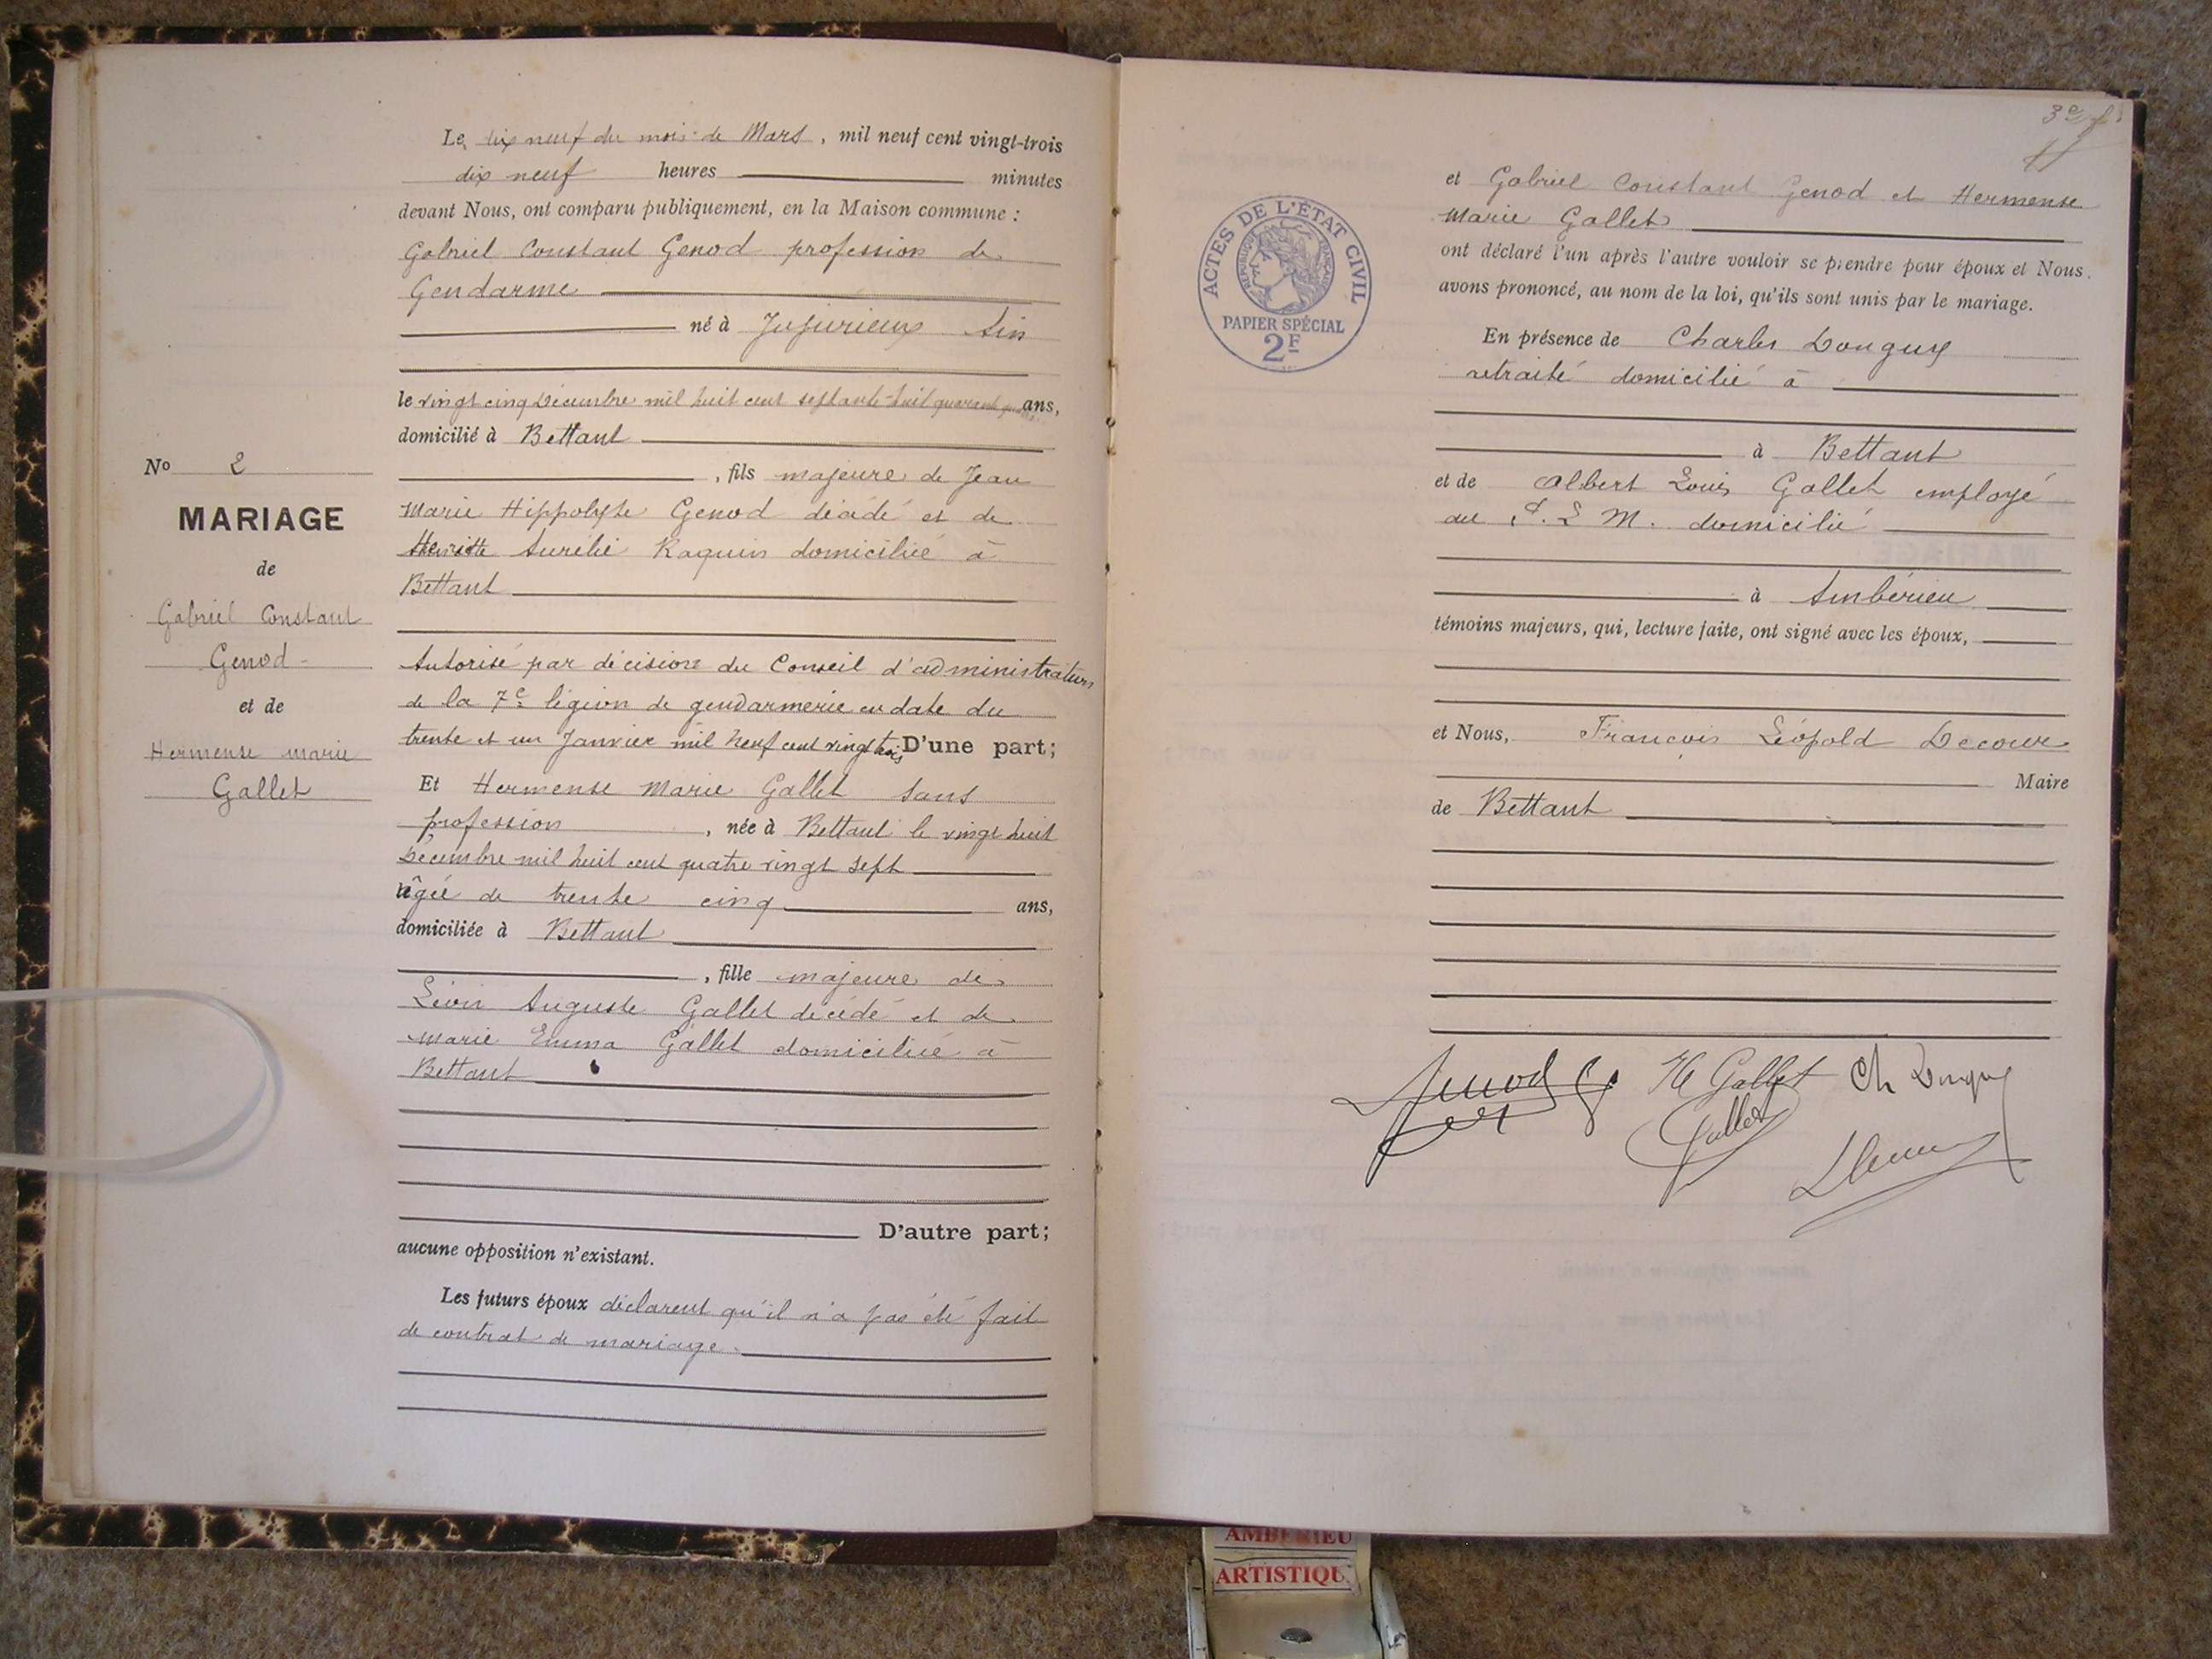 Le dix neuf du mois de Mars, mil neuf cent vingt-trois
dix neuf heures minutes
devant Nous, ont comparu publiquement, en la Maison commune :
Gabriel Constant Genod profession de
Gendarme
né à Jujurieux Ain
le vingt cinq Décembre mil huit cent septante-huit quarante quatre ans,
domicilié à Bettant
, fils majeure de Jean
Marie Hippolyte Genod décédé et de
Henriette Aurélie Raquin domiciliée à
Bettant
Autorisé par décision du Conseil d'administration
de la 7e légion de gendarmerie en date du
trente et un Janvier mil neuf cent vingt trois D'une part;
Et Hermense Marie Gallet sans
profession , née à Bettant le vingt huit
Décembre mil huit cent quatre vingt sept
âgée de trente cinq ans,
domiciliée à Bettant
, fille majeure de
Léon Auguste Gallet décédé et de
Marie Emma Gallet domiciliée à
Bettant
D'autre part;
aucune opposition n'existant.
Les futurs époux déclarent qu'il n'a pas été fait
de contrat de mariage.
No 2
MARIAGE
de
Gabriel Constant
Genod
et de
Hermense marie
Gallet
ACTES DE L'ÉTAT CIVIL
RÉPUBLIQUE FRANÇAISE
PAPIER SPÉCIAL
2F
et Gabriel Constant Genod et Hermense
Marie Gallet
ont déclaré l'un après l'autre vouloir se prendre pour époux et Nous
avons prononcé, au nom de la loi, qu'ils sont unis par le mariage.
En présence de Charles Donguy
retraité domicilié à
à Bettant
et de Albert Louis Gallet employé
au P. L M. domicilié
à Ambérieu
témoins majeurs, qui, lecture faite, ont signé avec les époux,
et Nous, François Léopold Decour
Maire
de Bettant
Genod H Gallet Ch Donguy
Gallet
AMBERIEU
ARTISTIQU